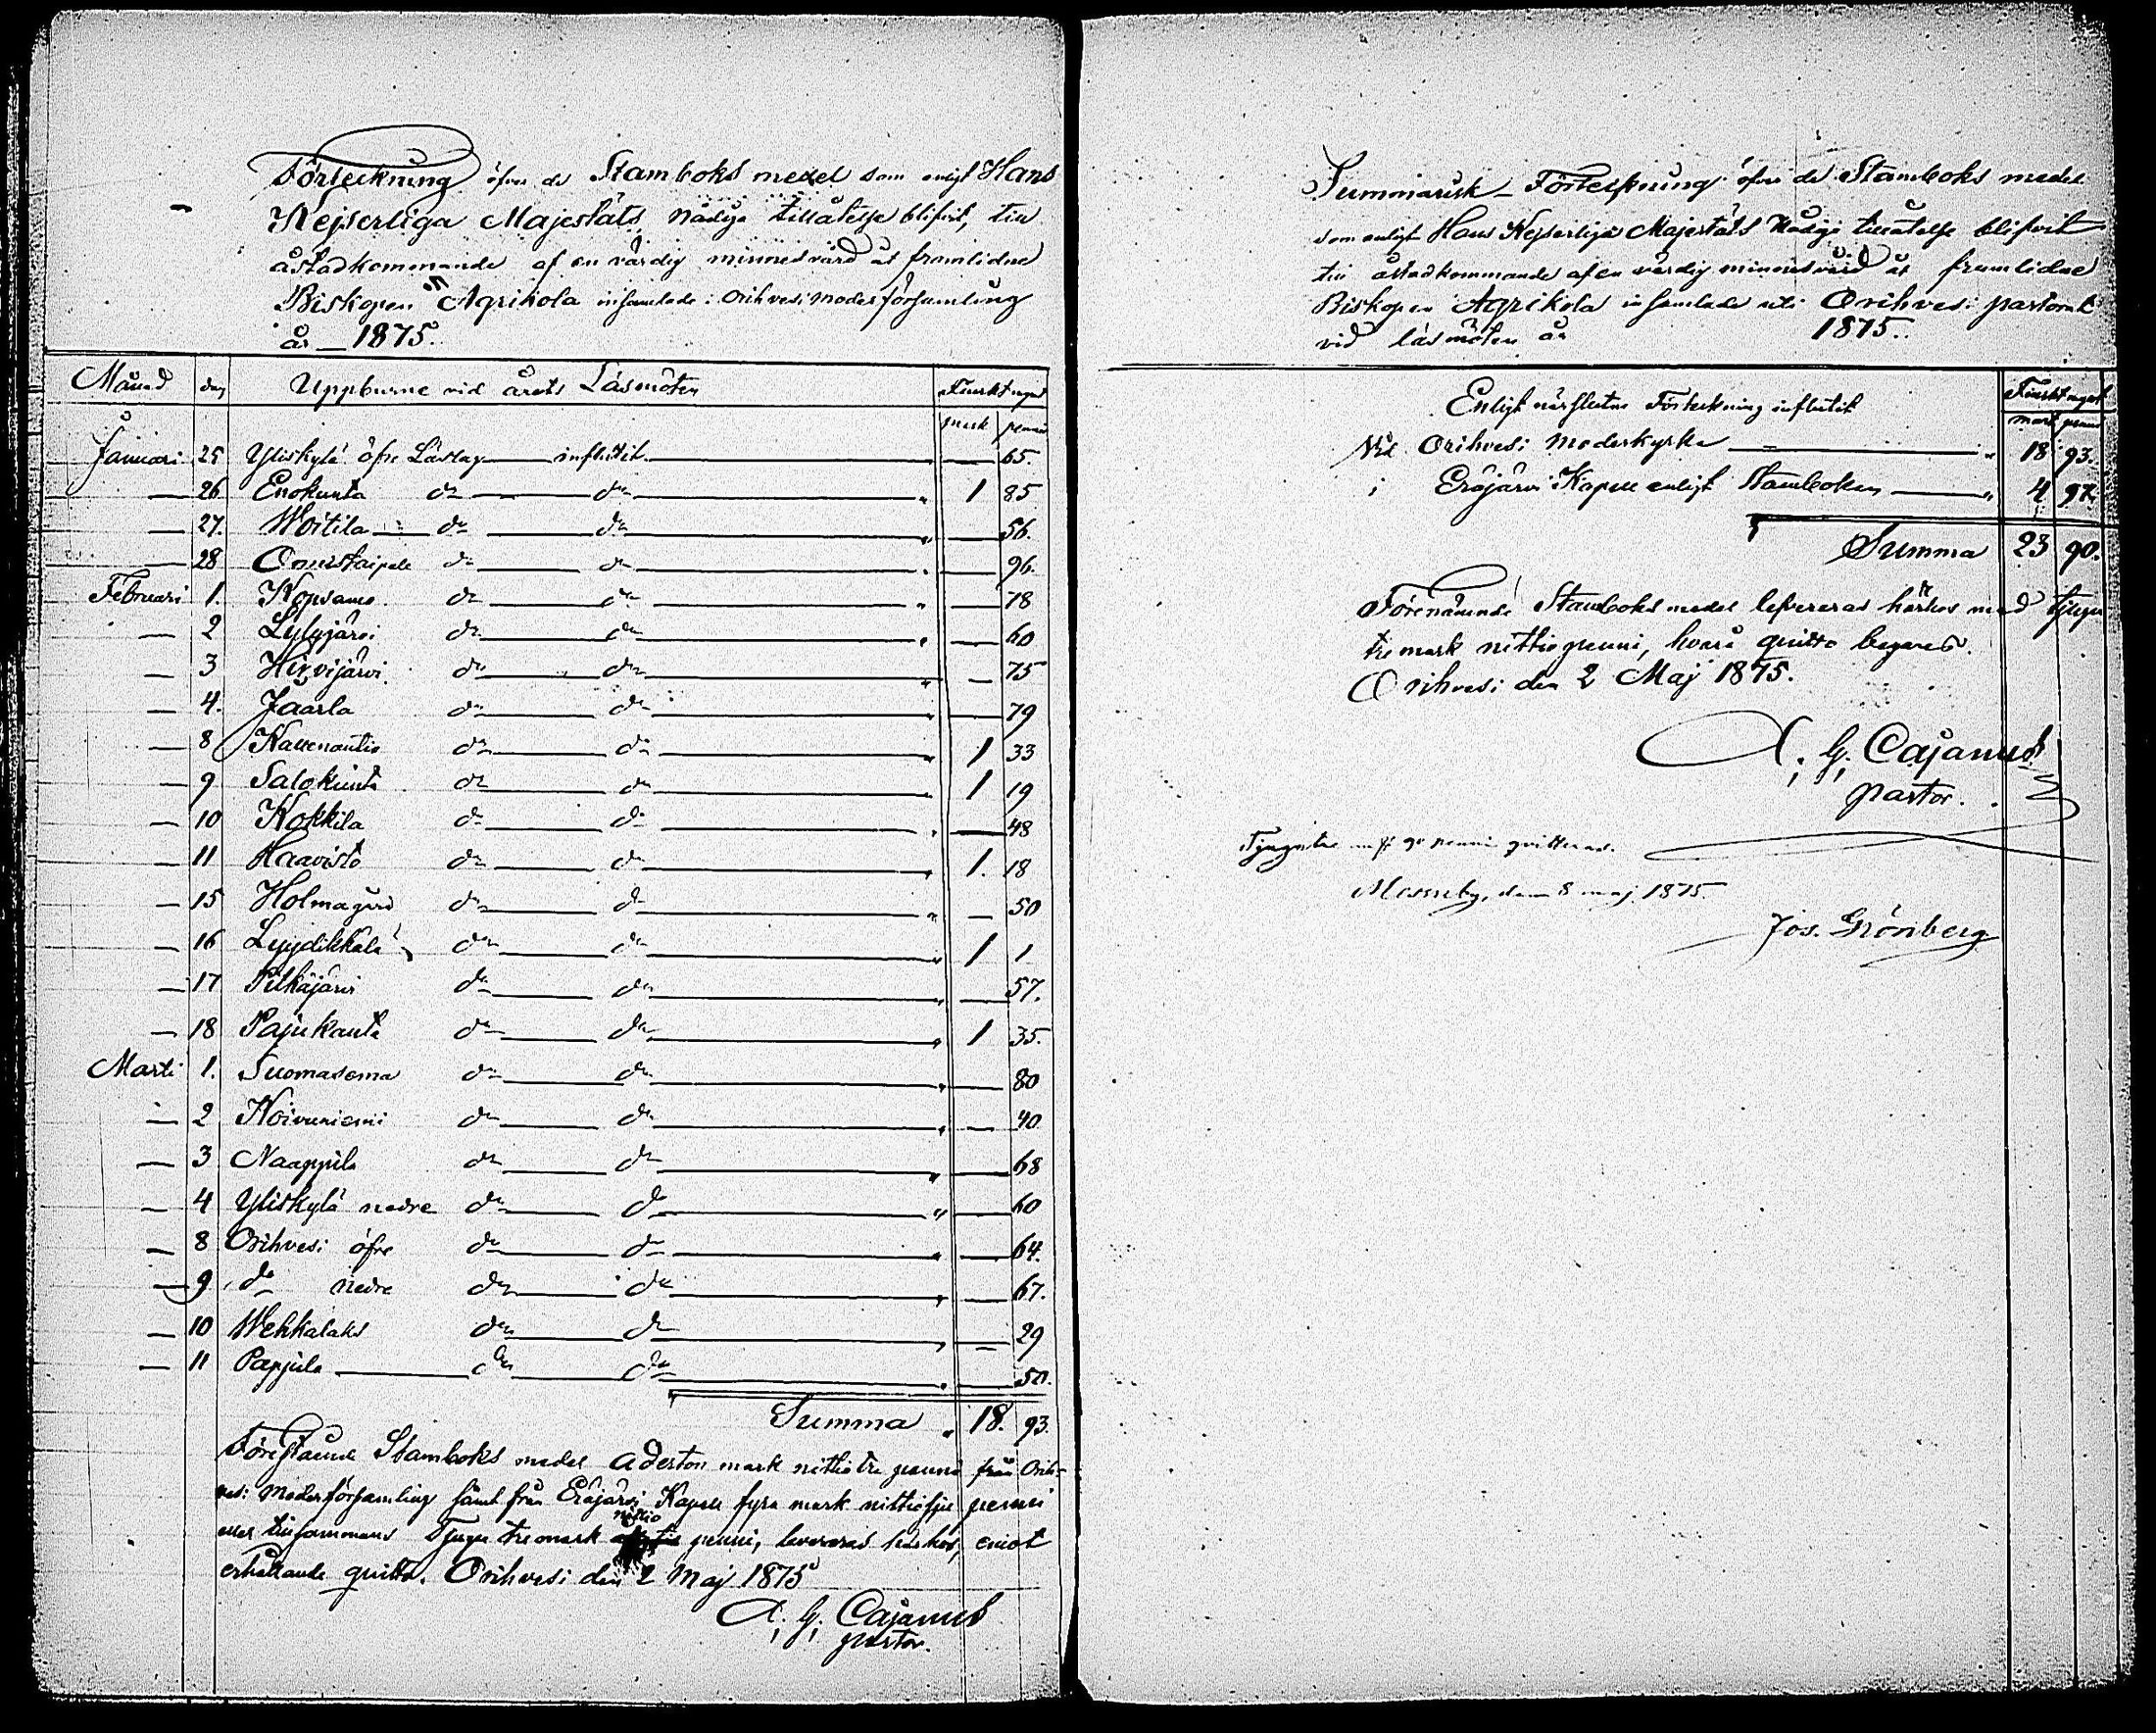 Förteckning öfver de Stamboks medel som enligt Hans
Kejserliga Majestäts Nådiga tillåtelse blifvit, till
åstadkommande af en värdig minnesvård åt framlidne
Biskopen M Agrikola insamlade i Orihvesi moderförsamling
år 1875.
Månad dag Uppburne vid årets Läsmöten Finskt mynt
mark penni
Januari 25 Yliskylä öfre Läslag influtit 65.
— 26 Enokunta do do " 1 85
— 27. Woitila do do " — 56.
— 28 Onnistaipale do do " — 96.
Februari 1. Kopsamo do do " — 78
— 2 Lylyjärvi do do " — 60
— 3 Hirvijärvi do do " — 75
— 4. Jaarla do do " — 79
— 8 Kallenautio do do " 1 33
— 9 Salokunta do do " 1 19
— 10 Kokkila do do " — 48
— 11 Haavisto do do " 1. 18
— 15 Holmagård do do " — 50
— 16 Lyydikkälä do do " 1 1
— 17 Pitkäjärvi do do " — 57.
— 18 Pajukanta do do " 1 35.
Marti 1. Suomasema do do " — 80
— 2 Koivuniemi do do " — 40
— 3 Naappila do do " — 68
— 4 Yliskylä nedre do do " — 60
— 8 Orihvesi öfre do do " — 64.
— 9. do nedre do do " — 67.
— 10 Wehkalaks do do " — 29
— 11 Pappila do do " — 50.
Summa " 18. 93.
Förestående Stamboks medel Aderton mark nittiotre penni från Orih-
vesi Moderförsamling samt från Eräjärvi Kapell fyra mark nittiosju penni
eller tillsammans Tjugu tre mark nittio penni, levereras härhos, emot
erhållande quitto. Orihvesi den 2 Maj 1875
A. G. Cajanus
pastor.
Summarisk Förteckning öfver de Stamboks medel
som enligt Hans Kejserliga Majestäts Nådiga tillåtelse blifvit
till åstadkommande af en värdig minnesvård åt framlidne
Biskopen Agrikola insamlade uti Orihvesi pastorat
vid läsmöten år 1875.
Enligt närslutne Förteckning influtit Finskt mynt
mark penni
Vid Orihvesi Moderkyrka " 18 93.
i Eräjärvi Kapell enligt Stamboken " 4 97.
Summa 23 90.
Förenämnde Stamboks medel levereras härhos med tjugu
tre mark nittio penni, hvarå quitto begäres.
Orihvesi den 2 Maj 1875.
A. G. Cajanus
pastor.
Tjugutre mk 90 penni qvitteras.
Messuby, den 8 maj 1875.
Jos. Grönberg